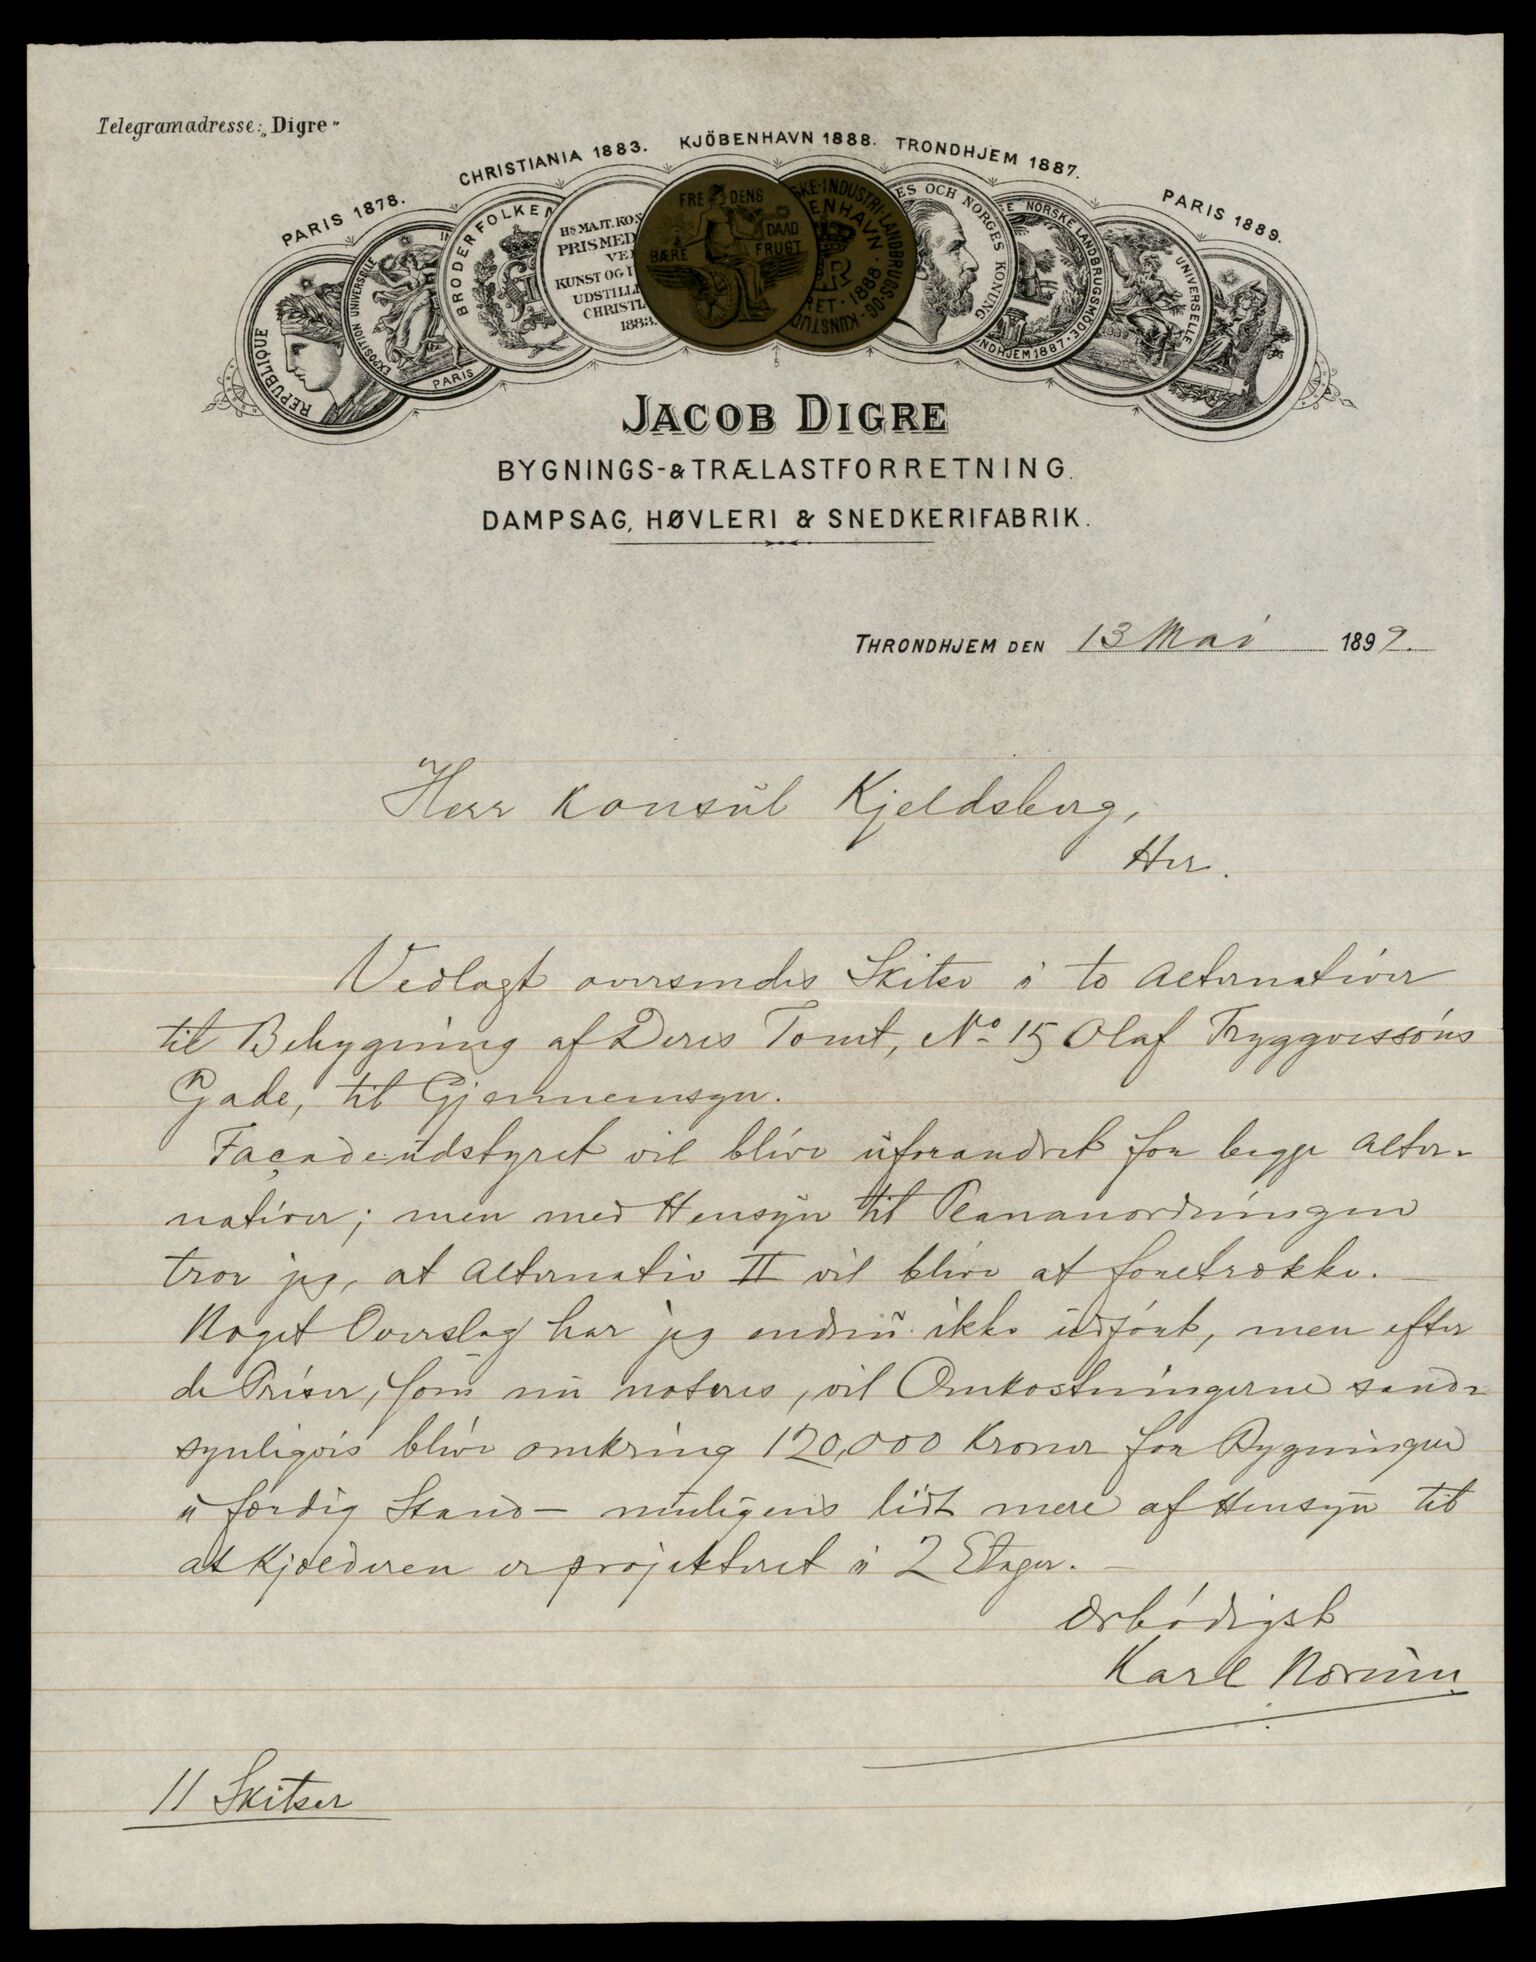 Telegramadresse: „Digre”
PARIS 1878. CHRISTIANIA 1883. KJÖBENHAVN 1888. TRONDHJEM 1887. PARIS 1889.
REPUBLIQUE
EXPOSITION UNIVERSELLE
PARIS
BRODERFOLKEN
HS MAJT. KON
PRISMED
VE
KUNST OG I
UDSTILL
CHRISTI
1883.
FREDENS
DAAD
BÆRE FRUGT
SKE·INDUSTRI·LANDBRUGS-OG·KUNSTUD
ENHAVN
RET·1888·
ES OCH NORGES KONUNG
E NORSKE LANDBRUGSMÖDE
NDHJEM 1887.
UNIVERSELLE
JACOB DIGRE
BYGNINGS- & TRÆLASTFORRETNING.
DAMPSAG, HØVLERI & SNEDKERIFABRIK.
THRONDHJEM DEN 13 Mai 1899.
Herr Konsul Kjeldsberg,
Her.
Vedlagt oversendes Skitse i to Alternativer
til Bebygning af Deres Tomt, No 15 Olaf Tryggvessøns
Gade, til Gjennemsyn.
Façadeudstyret vil blive uforandret for begge Alter-
nativer; men med Hensyn til Plananordningen
tror jeg, at Alternativ II vil blive at foretrække. —
Noget Overslag har jeg endnu ikke udført, men efter
de Priser, som nu noteres, vil Omkostningerne sand-
synligvis blive omkring 120,000 Kroner for Bygningen
i færdig Stand — muligens lidt mere af Hensyn til
at Kjælderen er projekteret i 2 Etager. —
Ærbødigst
Karl Norum
11 Skitser